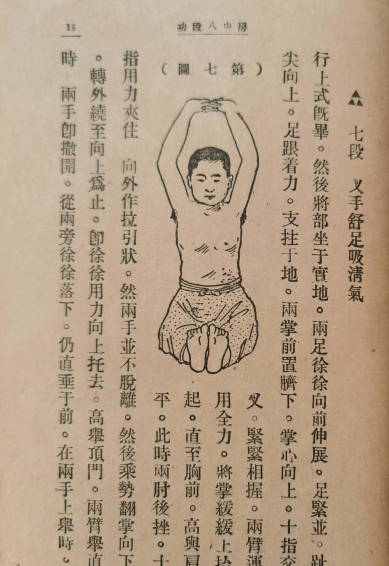 房中八段功
15
▲▲▲ 七段 叉手舒足吸清氣
行上式旣畢。然後將部坐于實地。兩足徐徐向前伸展。足緊並。趾
尖向上。足跟着力。支拄于地。兩掌前置臍下。掌心向上。十指交
(第七圖)
叉。緊緊相握。兩臂運
用全力。將掌緩緩上
起。直至胸前。高與肩
平。此時兩肘後挫。十
指用力夾住 向外作拉引狀。然兩手並不脫離。然後乘勢翻掌向下
。轉外繞至向上爲止。卽徐徐用力向上托去。高舉頂門。兩臂舉直
時 兩手卽撒開。從兩旁徐徐落下。仍直垂于前。在兩手上舉時。